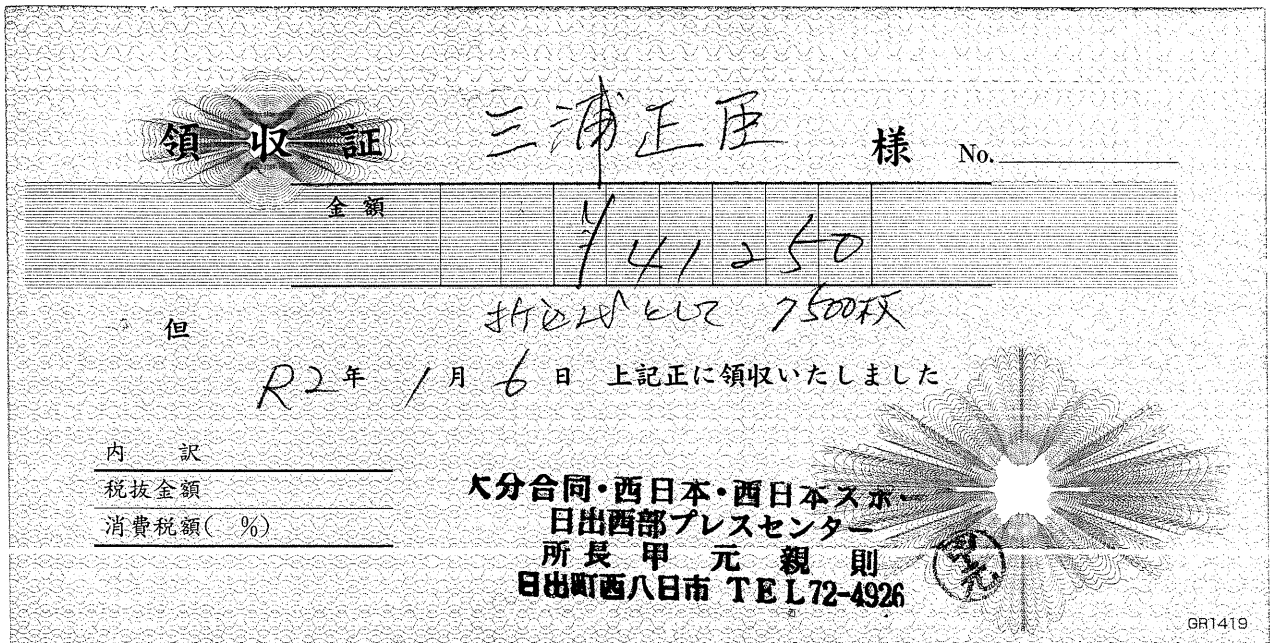 領収証 三浦正臣 様 No.
金額 ¥41250
但 折込代として 7500枚
R2年 1月 6日 上記正に領収いたしました
内 訳
税抜金額
消費税額( %)
大分合同・西日本・西日本スポー
日出西部プレスセンター
所長 甲元親則
日出町西八日市 TEL72-4926
甲元
GR1419